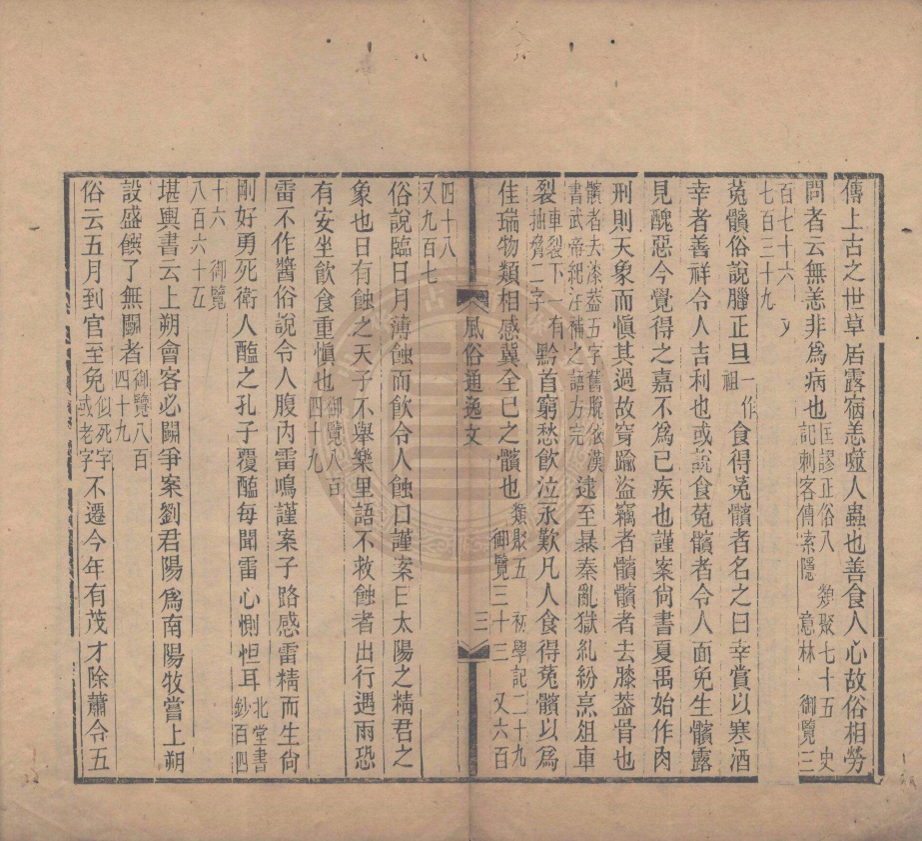 傳上古之世草居露宿恙噬人蟲也善食人心故俗相勞
問者云無恙非為病也匡謬正俗八 類聚七十五 史記刺客傳索隱 意林 御覽三
百七十六 又七百三十九
菟髕俗說臘正旦一作祖食得菟髕者名之曰幸賞以寒酒
幸者善祥令人吉利也或說食菟髕者令人面免生髕露
見醜惡今覺得之嘉不為己疾也謹案尚書夏禹始作肉
刑則天象而慎其過故穿踰盜竊者髕髕者去膝蓋骨也
髕者去漆葢五字舊脫依漢書武帝紀注補之語方完逮至暴秦亂獄糺紛烹俎車
裂車裂下一有抽脅二字黔首窮愁飲泣永歎凡人食得菟髕以為
佳瑞物類相感冀全己之髕也類聚五 初學記二十九 御覽三十三 又六百
四十八 又九百七
風俗通逸文 三
俗說臨日月薄蝕而飲令人蝕口謹案日太陽之精君之
象也日有蝕之天子不舉樂里語不救蝕者出行遇雨恐
有安坐飲食重慎也御覽八百四十九
雷不作醬俗說令人腹內雷鳴謹案子路感雷精而生尙
剛好勇死衛人醢之孔子覆醢每聞雷心惻怛耳北堂書鈔百四
十六 御覽八百六十五
堪輿書云上朔會客必鬬爭案劉君陽為南陽牧嘗上朔
設盛饌了無鬬者御覽八百四十九
俗云五月到官至免似死字或老字不遷今年有茂才除蕭令五